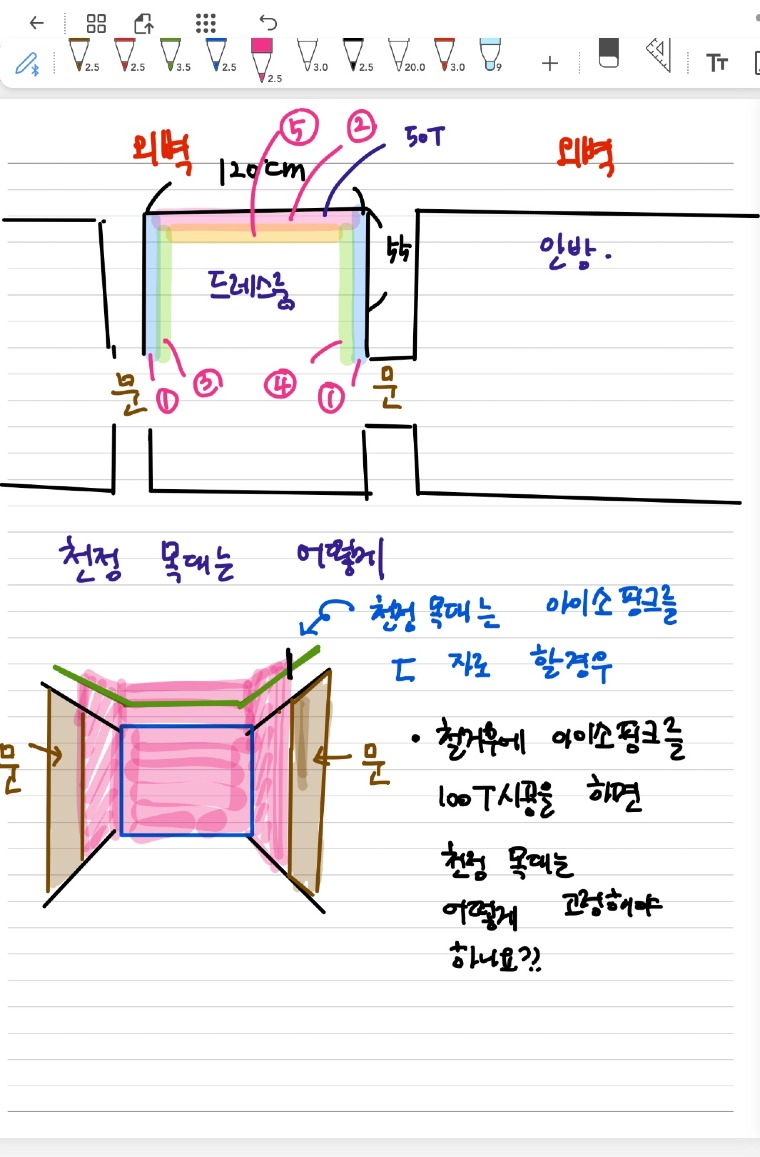 2.5 2.5 3.5 2.5 2.5 3.0 2.5 20.0 3.0 9 TT
⑤ ② 50T
외벽 120cm 외벽
55
안방.
드레스룸
문 ① ③ ④ ① 문
천정 목대는 어떻게
천정 목대는 아이소핑크를
ㄷ 자로 할경우
문 문
• 철거후에 아이소핑크를
100T시공을 하면
천정 목대는
어떻게 고정해야
하나요?!!